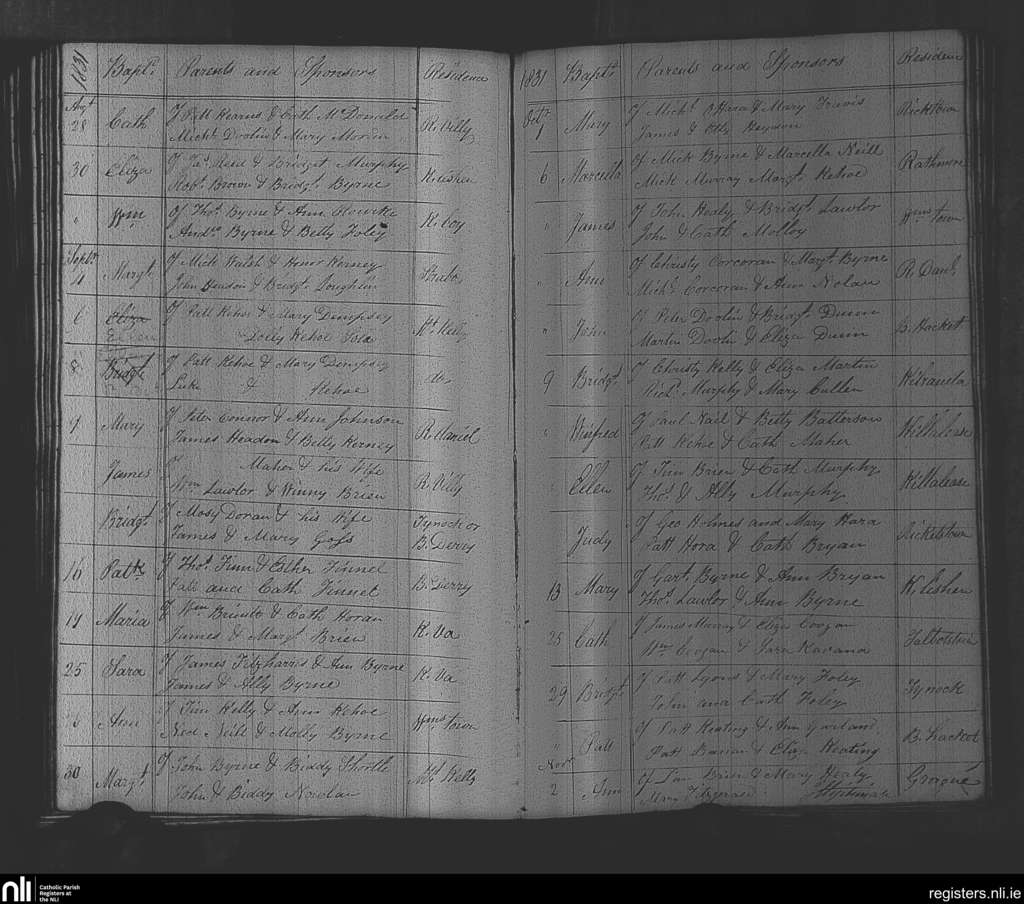 1831 Bapts Parents and Sponsors Residence
Augt 28 Cath Of Patt Kearns & Cath McDonald
Michl Doolin & Mary Moran R.Villy
30 Eliza Of Jas Reid & Bridget Murphy
Robt Brown & Bridgt Byrne
" Wm Of Thos Byrne & Ann
Andw Byrne & Betty Foley
Septr 4 Margt Of Mich Walsh & Honor Kerney
John & Bridgt Loughlin
6 Eliza
Ellen Of Patt Kehoe & Mary Dempsey
Dolly Kehoe Sola Mt Kelly
8 Bridgt Of Patt Kehoe & Mary Dempsey
Luke & Kehoe do
9 Mary Of Peter Connor & Ann Johnson
James Headon & Betty Kerney
James Of Maher & his Wife
Wm Lawlor & Winny Brien R.Villy
Bridgt Of Mosy Doran & his Wife Tynock or
James & Mary Goss B.Derry
16 Patk Of Thos Finn & Esther Finnel
Patt and Cath Finnel B.Derry
19 Maria Of Wm & Cath Horan
James & Margt Brien K.Va
25 Sara Of James Fitzharris & Ann Byrne
James & Ally Byrne K.Va
Ann Of Tim Kelly & Ann Kehoe
Ned Neill & Molly Byrne Wmstown
30 Margt Of John Byrne & Biddy Shortle
John & Biddy Nowlan Mt Kelly
1831 Bapts Parents and Sponsors Residence
Octr 1 Mary Of Michl OHara & Mary Travis
James & Heydon
6 Marcella Of Mick Byrne & Marcella Neill
Mick Murray Margt Kehoe Rathmore
" James Of John Healy & Bridgt Lawlor
John & Cath Molloy Wmstown
" Ann Of Christy Corcoran & Margt Byrne
Michl Corcoran & Ann Nolan
" John Of Peter Doolin & Bridgt Dunn
Martin Doolin & Eliza Dunn B.Hacket
9 Bridgt Of Christy Kelly & Eliza Martin
Richd Murphy & Mary Cullen
" Winfred Of Paul Neil & Betty Batterson
Patt Kehoe & Cath Maher Killalease
" Ellen Of Tim Brien & Cath Murphy
Thos & Ally Murphy Killalease
" Judy Of Geo Holmes and Mary Hara
Patt Hora & Cath Bryan Ricketstown
13 Mary Of Gart Byrne & Ann Bryan
Thos Lawlor & Ann Byrne
25 Cath Of James Murray & Eliza Coogan
Wm Coogan & Sara Kavana Talbotstown
29 Bridgt Of Patt Lyons & Mary Foley
John and Cath Foley Tynock
" Patt Of Patt Keating & Ann
Patt & Eliza Keating B.hacket
Novr 2 Ann Of Lau Brien & Mary Healy
Mary Fitzgerald Graigue
nli
Catholic Parish
Registers at
the NLI
registers.nli.ie